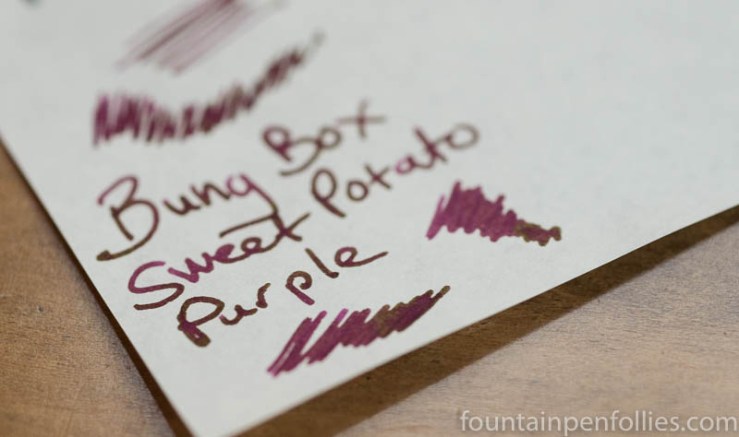 Bung Box
Sweet Potato
Purple
fountainpenfollies.com